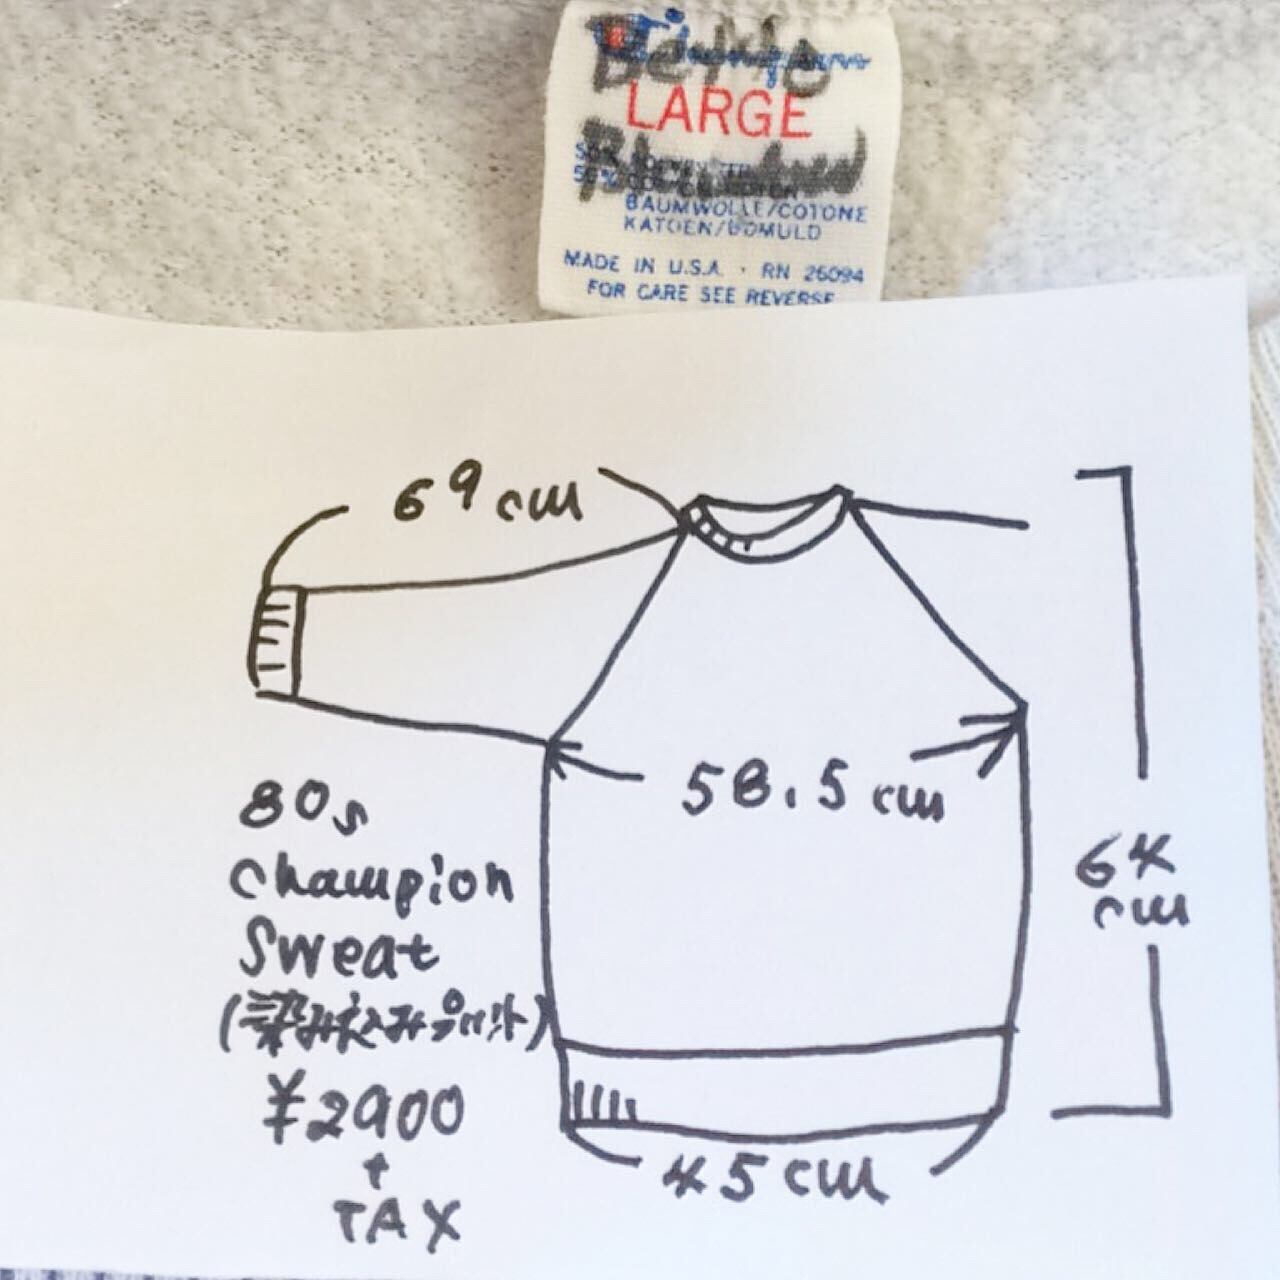 LARGE
BAUMWOLLE/COTONE
KATOEN/BOMULD
MADE IN U.S.A. · RN 26094
FOR CARE SEE REVERSE
69 cm
58.5 cm
64
cm
80s
Champion
Sweat
(染み込みプリント)
¥2900
+
TAX
45 cm